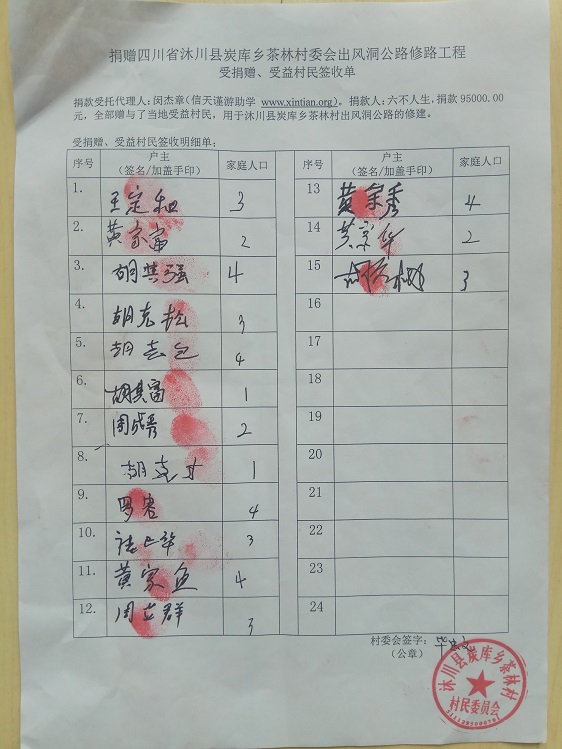 捐赠四川省沐川县炭库乡茶林村委会出风洞公路修路工程
受捐赠、受益村民签收单
捐款受托代理人：闵杰章（信天谨游助学 www.xintian.org）。捐款人：六不人生，捐款 95000.00
元，全部赠与了当地受益村民，用于沐川县炭库乡茶林村出风洞公路的修建。
受捐赠、受益村民签收明细单：
序号 户主（签名/加盖手印） 家庭人口
1. 王定和 3
2. 黄家富 2
3. 胡其强 4
4. 胡克松 3
5. 胡志包 4
6. 胡其富 1
7. 周成秀 2
8. 胡支才 1
9. 罗容 4
10. 3
11. 黄家鱼 4
12. 周立群 3
序号 户主（签名/加盖手印） 家庭人口
13 黄家秀 4
14 黄家华 2
15 3
16
17
18
19
20
21
22
23
24
村委会签字：
（公章）
沐川县炭库乡茶林村
村民委员会